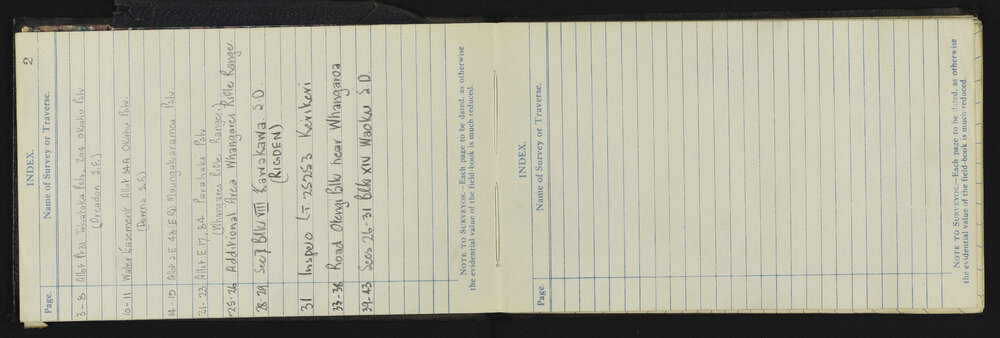 2
INDEX.
Page. Name of Survey or Traverse.
3-8 Allot Pt 31 Takahika Psh, 204 Okahu Psh
(Preadon S.E.)
10-11 Water Easement Allot 34A Okahu Psh.
(Downs S.E.)
14-19 Allot S.E. 43 (E.R) Maungakaramea Psh.
21-23 Allot E 17. 84 Parahaki Psh
(Whangarei Rifle Range)
25-26 Additional Area Whangarei Rifle Range
28-29 Sec 7 Blk VIII Kawakawa S.D.
(RIGDEN)
31 Inspelo (T. 25253 Kerikeri
33-38 Road Otengi Blk near Whangaroa
39-43 Secs 26-31 Blk XIV Waoku S.D.
NOTE TO SURVEYOR.—Each page to be dated, as otherwise
the evidential value of the field-book is much reduced.
INDEX.
Page. Name of Survey or Traverse.
NOTE TO SURVEYOR.—Each page to be dated, as otherwise
the evidential value of the field-book is much reduced.